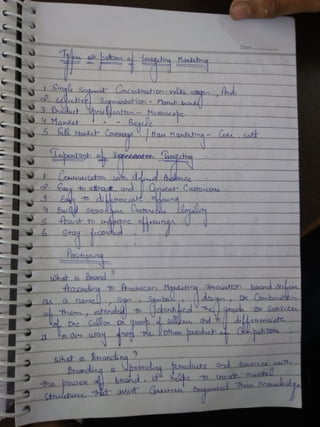 Date
Types or pattern of targeting Marketing
1 Single Segment Concentration-
2 Selective Segmentation-
3 Product Specilization- Microscope
4 Market " - Bicycle
5 Full Market Coverage / Mass Marketing-
Important of Segmentation Targeting
1 Communication with defined Audience
2 Easy to attract and Convert Customers
3 Easy to differenciate
4 Build Customer loyality
5 Assist to improve offerings
6 Stay focused
Positioning
What is Brand?
According to American Marketing association brand
as a name, sign, symbol, design, or Combination
of them, intended to identified the goods or services
of one seller or group of sellers and to differenciate
in any way from the other product of Competitors
What is Branding?
Branding is providing products and services with
the power of brand. it helps to create mental
structures that assist Consumer organized their knowledge